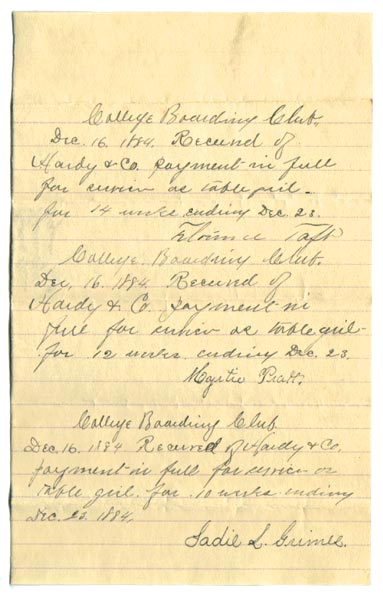 College Boarding Club.
Dec. 16. 1884. Received of
Hardy & Co. payment in full
for service as table girl.
for 14 weeks ending Dec. 23.
Taft
College Boarding Club.
Dec. 16. 1884. Received of
Hardy & Co. payment in
full for service as table girl
for 12 weeks ending Dec. 23.
Myrtie Pratt.
College Boarding Club
Dec. 16. 1884. Received of Hardy & Co.
payment in full for service as
table girl for 10 weeks ending
Dec. 23. 1884.
Sadie L. Grimes.